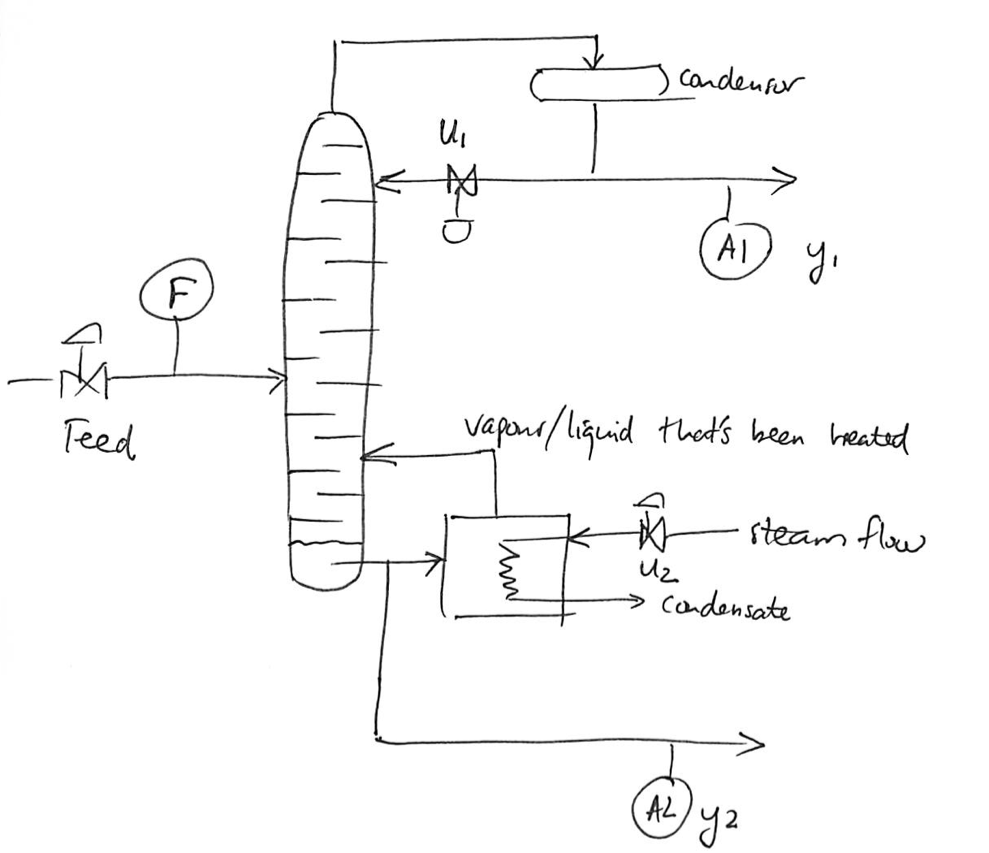 condensor
U1
A1 y1
F
Feed
vapour/liquid that's been heated
steam flow
U2
condensate
A2 y2